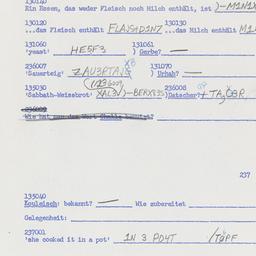 130140
Ein Essen, das weder Fleisch noch Milch enthält, ist )-M1N1X
130120 130130
...das Fleisch enthält FLAJSHD1NZ ...das Milch enthält M1L
131060 131061
'yeast' HE5F3 ) Gerbe? —
236007 131070
'Sauerteig' ZAU3RTAJG ) Urhah? —
135030 236008
'Sabbath-Weissbrot' )-BERX35 )Datscher? TA
236009
237
135040
Kouleisch: bekannt? — Wie zubereitet
Gelegenheit:
237001
'she cooked it in a pot' 1N 3 PO4T /TOPF